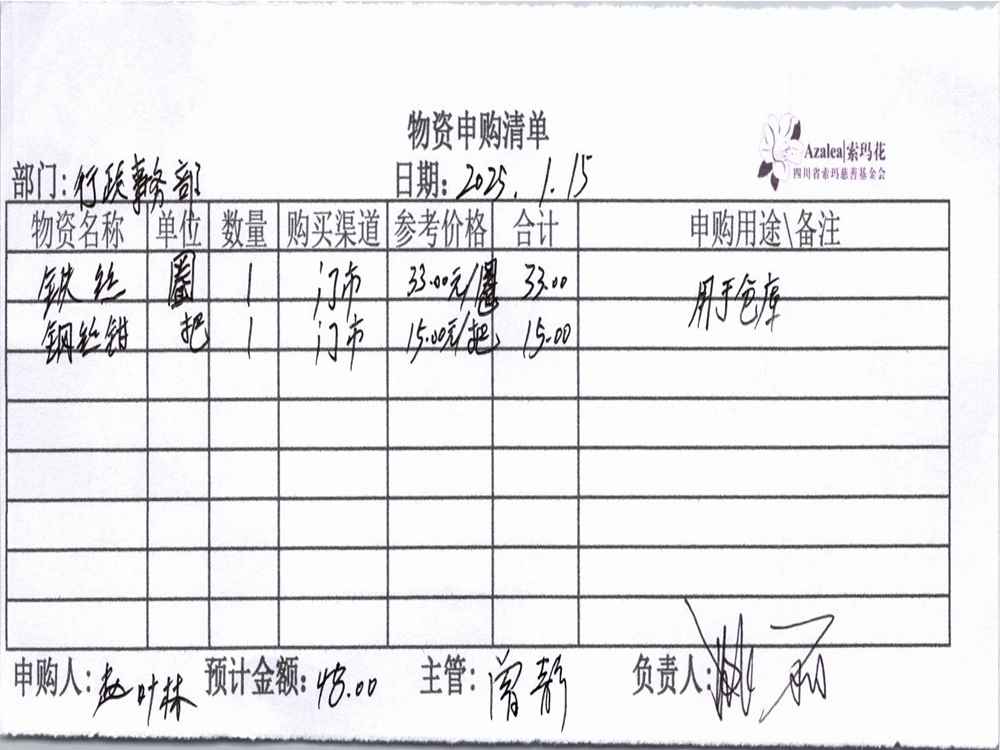 物资申购清单
Azalea|索玛花
四川省索玛慈善基金会
部门:行政事务部 日期:2025.1.15
物资名称 单位 数量 购买渠道 参考价格 合计 申购用途\备注
铁丝 圈 1 门市 33.00元/圈 33.00 用于仓库
钢丝钳 把 1 门市 15.00元/把 15.00
申购人:赵叶林 预计金额:48.00 主管:曾静 负责人: